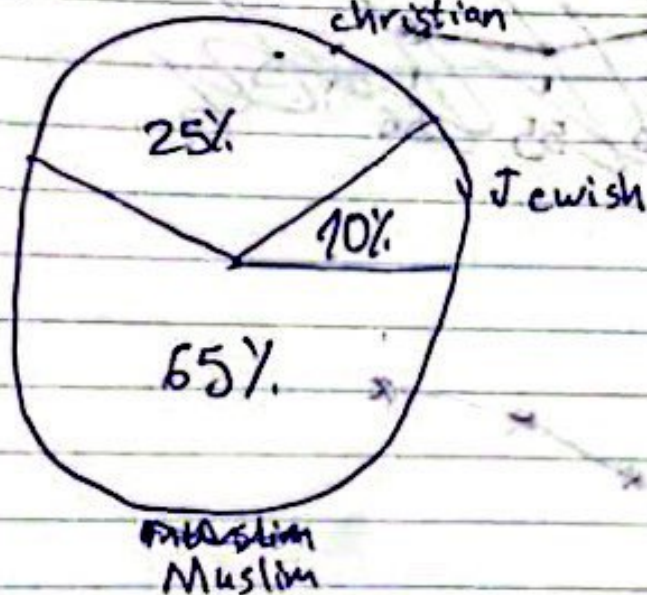 christian
25%
Jewish
10%
65%
Muslim